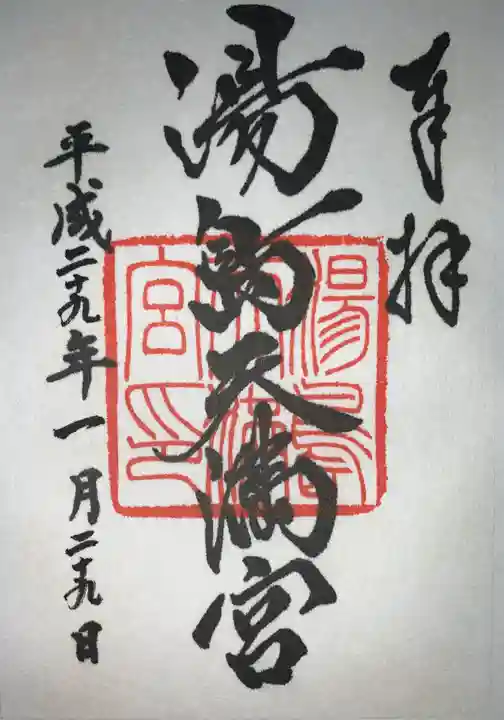 奉拝
湯島天満宮
平成二十九年一月二十九日
湯島天満宮印